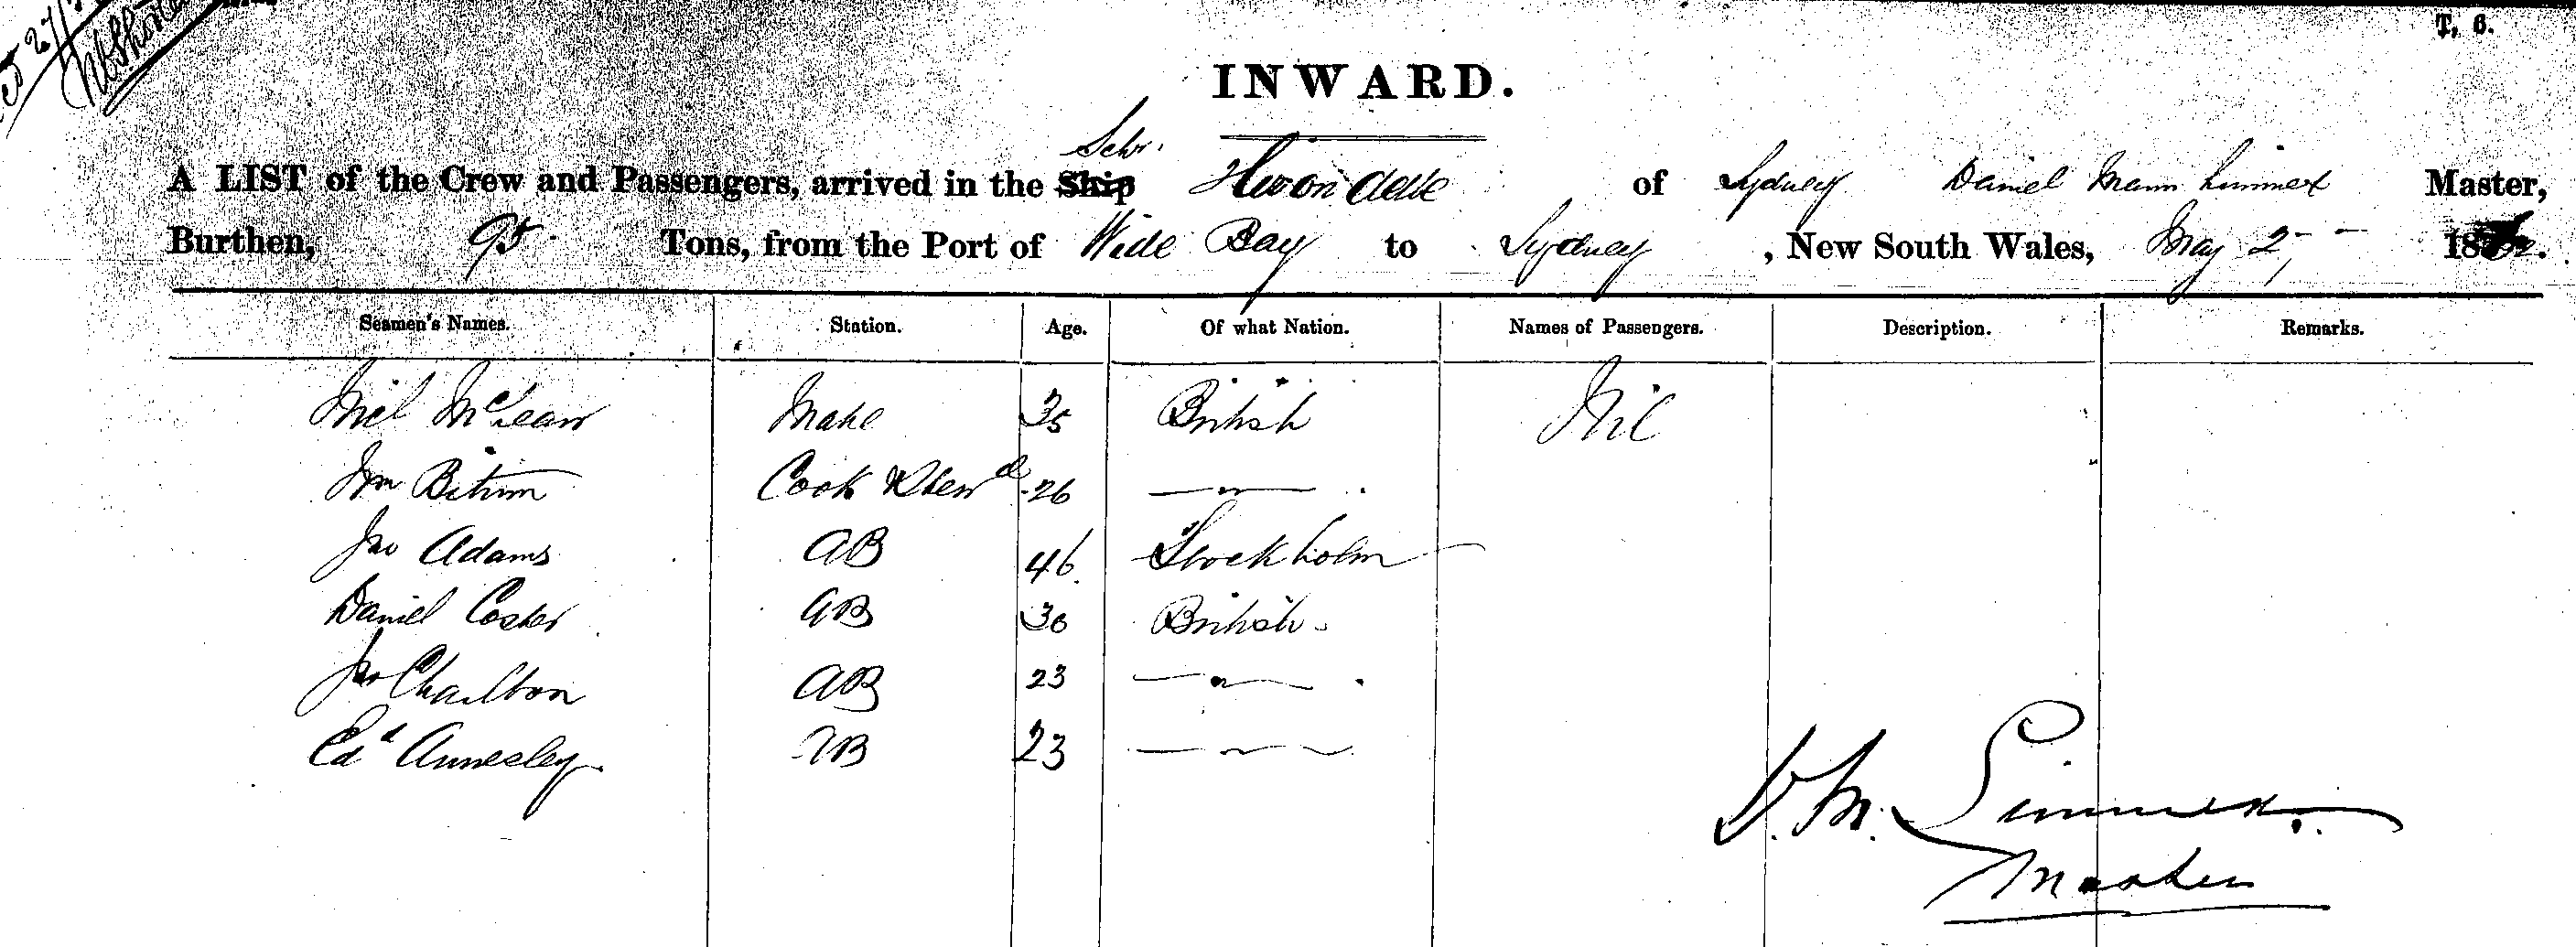 T, 6.
INWARD.
Schr.
A LIST of the Crew and Passengers, arrived in the Ship Hirondelle of Sydney Daniel Mann Limmex Master,
Burthen, 95 Tons, from the Port of Wide Bay to Sydney, New South Wales, May 2, 18
Seamen's Names. Station. Age. Of what Nation. Names of Passengers. Description. Remarks.
Niel McLean Mate 35 British Nil
Wm Cook Stewd 26 —"—
Jno Adams AB 46 Stockholm
Daniel Coster AB 30 British
Jno Charlton AB 23 —"—
Edd Annesley AB 23 —"—
D. M. Limmex
Master